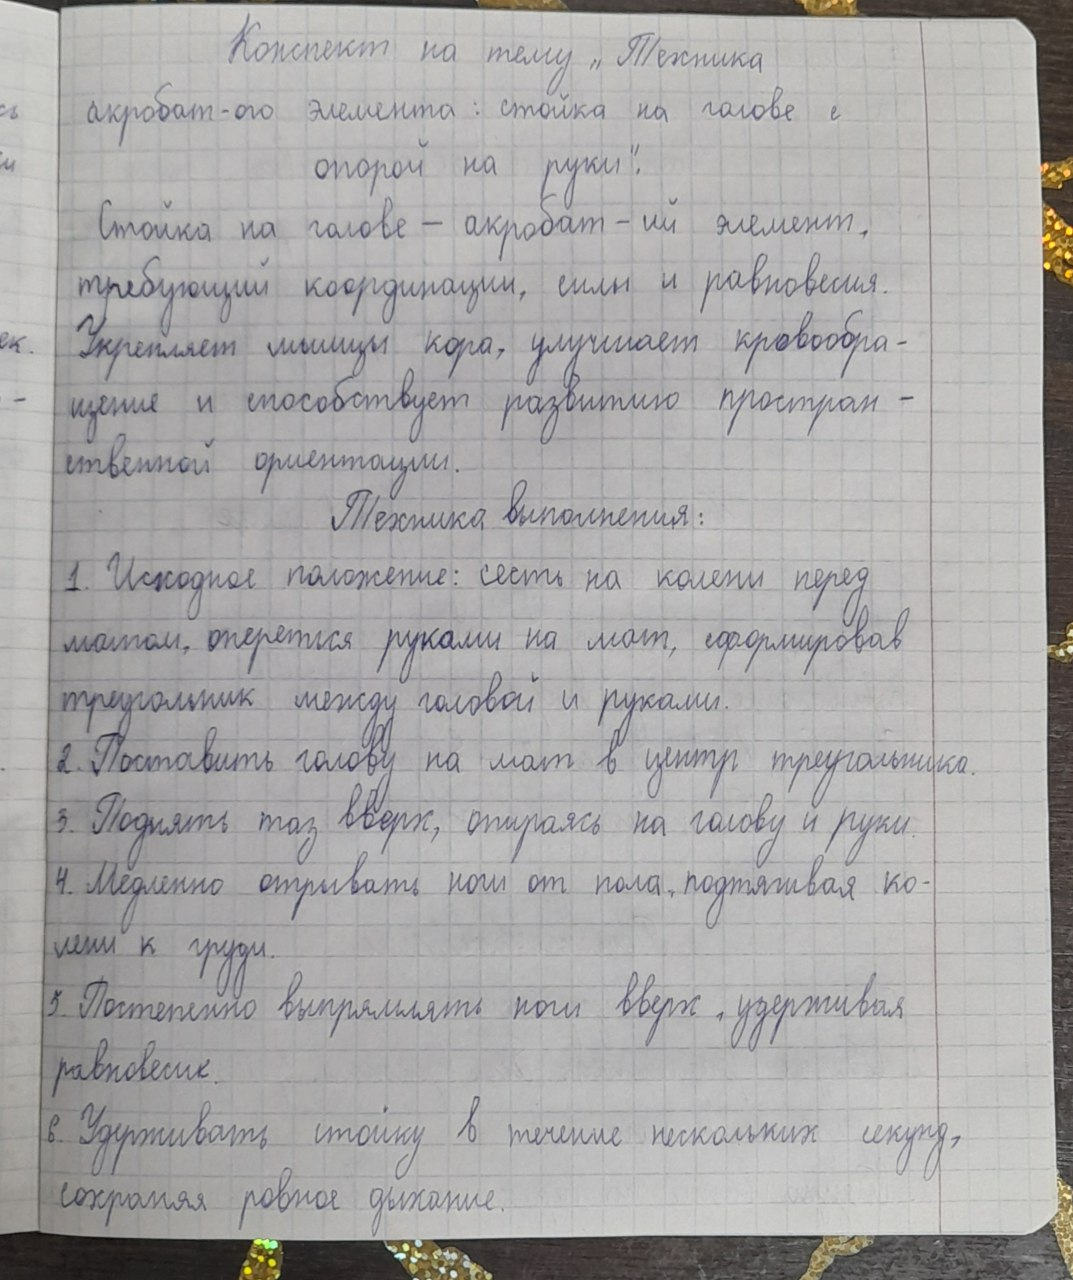 Конспект на тему „Техника
акробат-ого элемента: стойка на голове с
опорой на руки".
Стойка на голове – акробат-ий элемент,
требующий координации, силы и равновесия.
Укрепляет мышцы кора, улучшает кровообра-
щение и способствует развитию простран-
ственной ориентации.
Техника выполнения:
1. Исходное положение: сесть на колени перед
матом, опереться руками на мат, сформировав
треугольник между головой и руками.
2. Поставить голову на мат в центр треугольника.
3. Поднять таз вверх, опираясь на голову и руки.
4. Медленно отрывать ноги от пола, подтягивая ко-
лени к груди.
5. Постепенно выпрямлять ноги вверх, удерживая
равновесие.
6. Удерживать стойку в течение нескольких секунд,
сохраняя ровное дыхание.